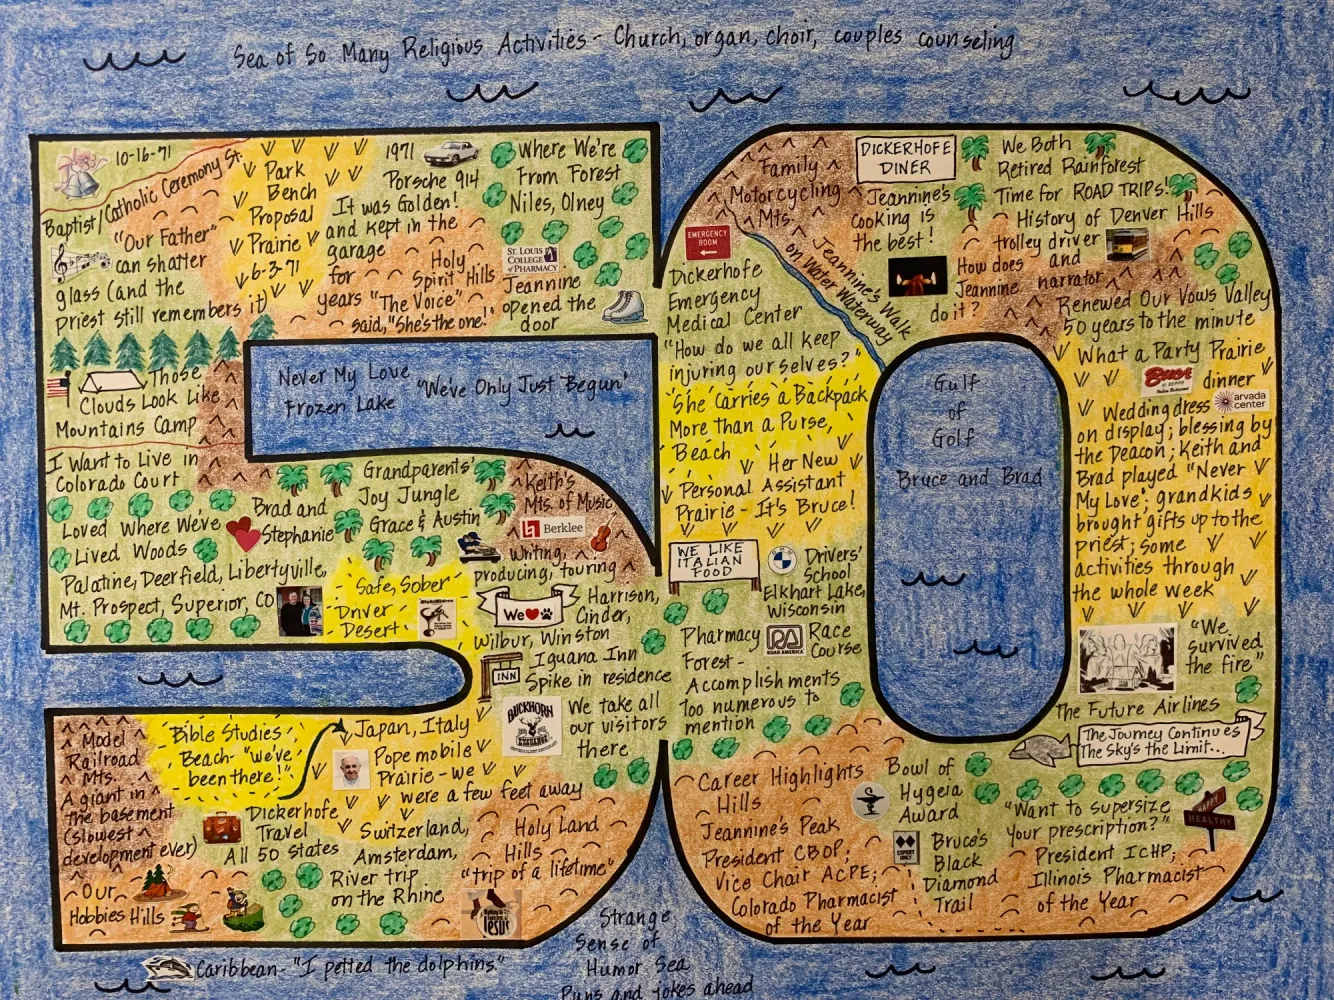 Sea of So Many Religious Activities - Church, organ, choir, couples counseling
10-16-71
Baptist/Catholic Ceremony St.
"Our Father"
can shatter
glass (and the
priest still remembers it)
Park
Bench
Proposal
Prairie
6-3-71
1971
Porsche 914
It was Golden!
and kept in the
garage
for
years
Where We're
From Forest
Niles, Olney
Holy
Spirit Hills
"The Voice"
said, "She's the one!"
ST. LOUIS
COLLEGE
of PHARMACY
Jeannine
opened the
door
Those
Clouds Look Like
Mountains Camp
I Want to Live in
Colorado Court
Never My Love
Frozen Lake
"We've Only Just Begun"
Loved Where We've
Lived Woods
Palatine, Deerfield, Libertyville,
Mt. Prospect, Superior, CO
Brad and
Stephanie
Grandparents'
Joy Jungle
Grace & Austin
Keith's
Mts. of Music
Berklee
Writing,
producing, touring
Safe, Sober
Driver
Desert
We
Harrison,
Cinder,
Wilbur, Winston
Iguana Inn
Spike in residence
INN
BUCKHORN
EXCHANGE
We take all
our visitors
there
Model
Railroad
Mts.
A giant in
the basement
(slowest
development ever)
Our
Hobbies Hills
Bible Studies
Beach- "we've
been there!"
Japan, Italy
Popemobile
Prairie - we
were a few feet away
Dickerhofe
Travel
All 50 states
Switzerland,
Amsterdam,
River trip
on the Rhine
Holy Land
Hills
"trip of a lifetime"
Jesus
Caribbean - "I petted the dolphins"
Strange
Sense of
Humor Sea
Puns and jokes ahead
Family
Motorcycling
Mts.
DICKERHOFE
DINER
Jeannine's
cooking is
the best!
We Both
Retired Rainforest
Time for ROAD TRIPS!
History of Denver Hills
trolley driver
and
narrator
How does
Jeannine
do it?
Jeannine's Walk
on Water Waterway
EMERGENCY
ROOM
Dickerhofe
Emergency
Medical Center
"How do we all keep
injuring ourselves?"
She Carries a Backpack
More than a Purse,
Beach
Her New
Personal Assistant
Prairie - It's Bruce!
Renewed Our Vows Valley
50 years to the minute
Gulf
of
Golf
Bruce and Brad
What a Party Prairie
Buca
dinner
arvada
center
Wedding dress
on display; blessing by
the Deacon; Keith and
Brad played "Never
My Love"; grandkids
brought gifts up to the
priest; some
activities through
the whole week
WE LIKE
ITALIAN
FOOD
BMW
Drivers'
School
Elkhart Lake,
Wisconsin
Pharmacy
Forest -
Accomplishments
too numerous to
mention
ROAD AMERICA
Race
Course
"We
survived
the fire"
The Future Airlines
The Journey Continues
The Sky's the Limit...
Career Highlights
Hills
Jeannine's Peak
President CBOP;
Vice Chair ACPE;
Colorado Pharmacist
of the Year
Bowl of
Hygeia
Award
EXPERT
ONLY
Bruce's
Black
Diamond
Trail
"Want to supersize
your prescription?"
President ICHP;
Illinois Pharmacist
of the Year
HAPPY
HEALTHY